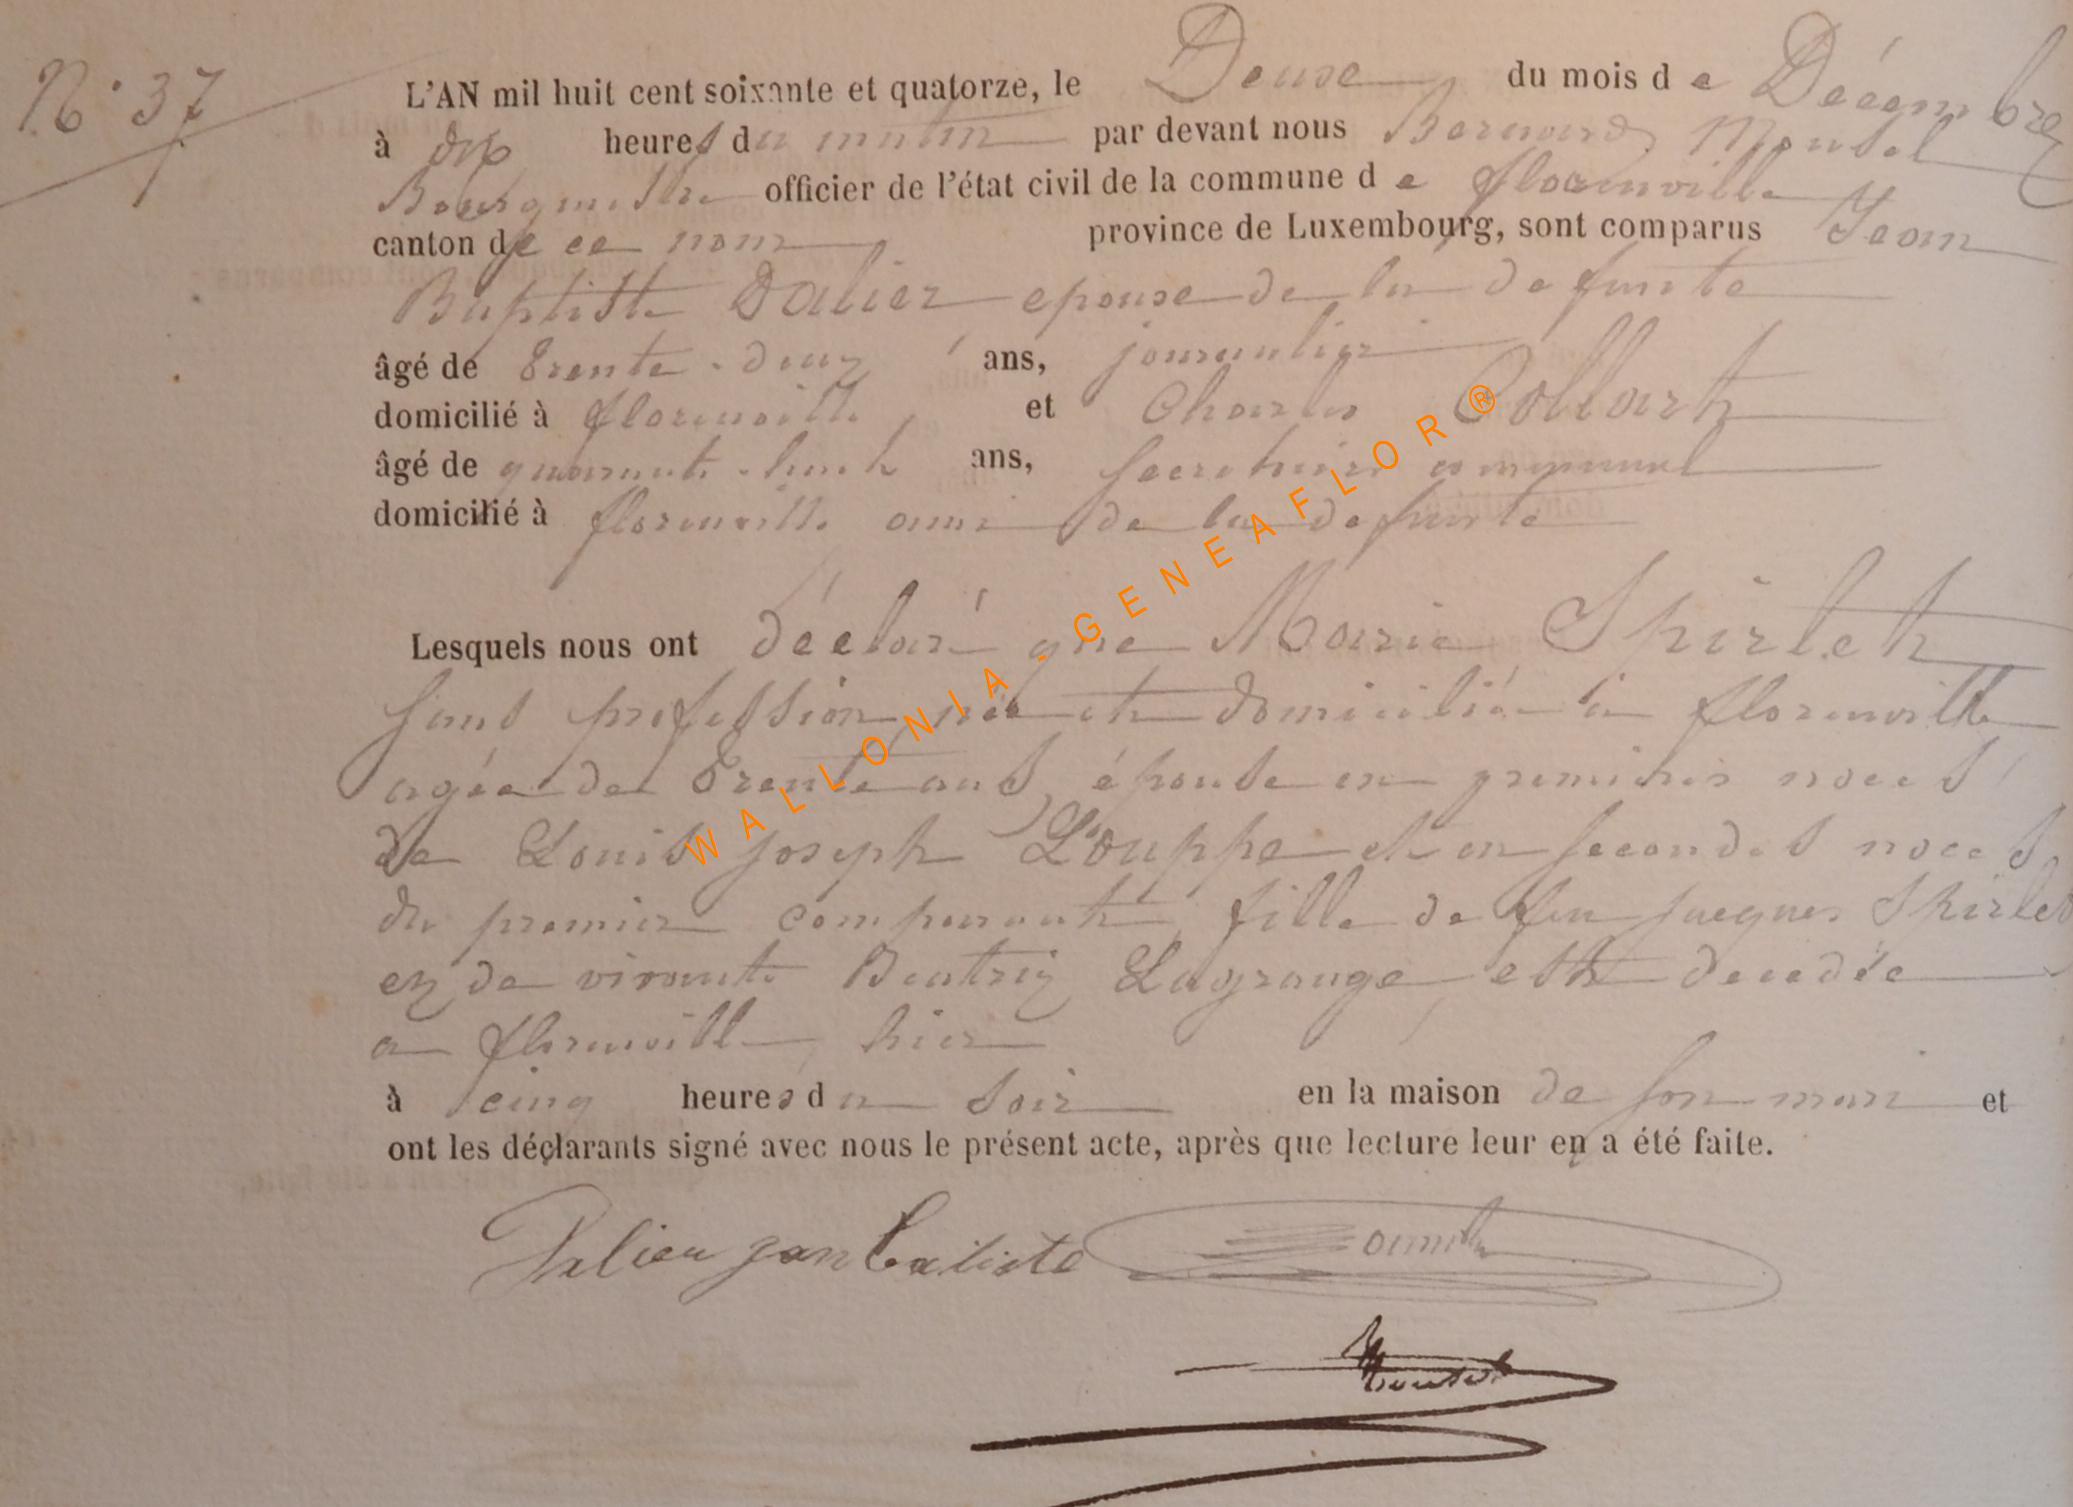 N° 37
L'AN mil huit cent soixante et quatorze, le Douse du mois de Décembre
à dix heures du matin par devant nous Bernard Mousel
Bourgmestre officier de l'état civil de la commune de florenville
canton de ce nom province de Luxembourg, sont comparus Jean
Baptiste Dalier epouse de la defunte
âgé de trente-deux ans, journalier
domicilié à florenville et Charles Collart
âgé de quarante-huit ans, secretaire communal
domicilié à florenville ami de la defunte
Lesquels nous ont déclaré que Marie Spirlet
sans profession, née et domiciliée à florenville
agée de Trente ans, épouse en premières noces
de Louis Joseph Louppe et en secondes noces
du premier comparant, fille de feu Jacques Spirlet
et de vivante Beatrix Lagrange, est decedée
a florenville hier
à cinq heures du soir en la maison de son mari et
ont les déclarants signé avec nous le présent acte, après que lecture leur en a été faite.
Dalieu jan batiste
WALLONIA - GENEAFLOR ®